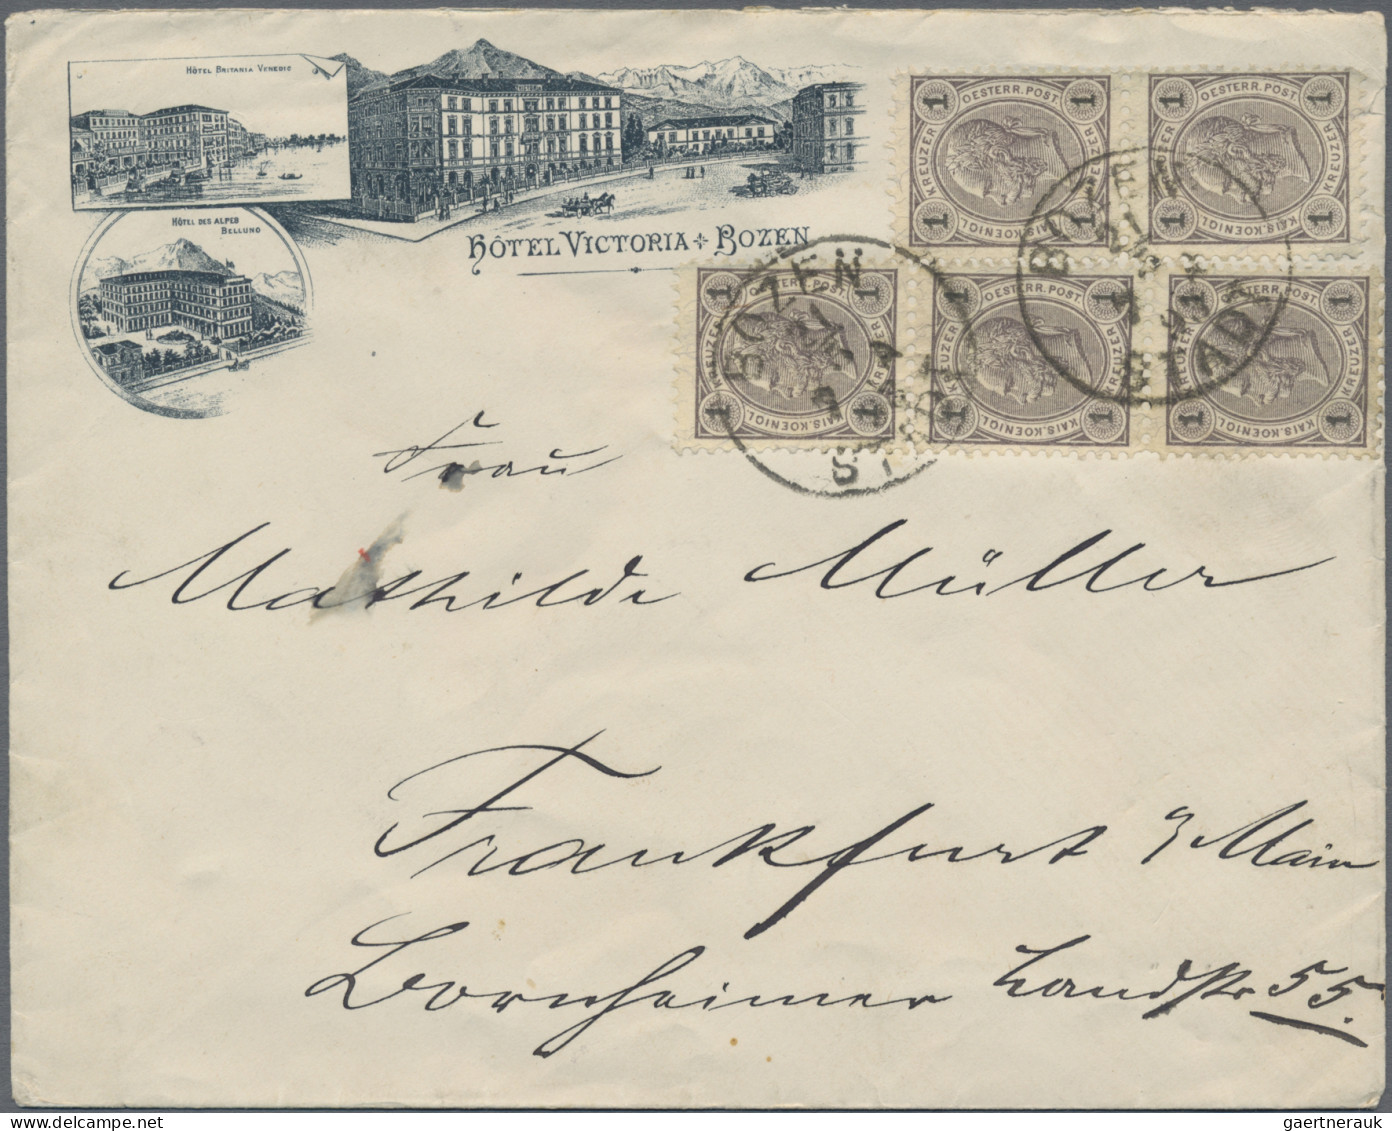 HÔTEL BRITANIA VENEDIG
HÔTEL DES ALPES
BELLUNO
HÔTEL VICTORIA + BOZEN
1 OESTERR. POST. 1
KREUZER KREUZER
1 KAIS. KOENIGL 1
1 OESTERR. POST. 1
KREUZER KREUZER
1 KAIS. KOENIGL 1
1 OESTERR. POST. 1
KREUZER KREUZER
1 KAIS. KOENIGL 1
1 OESTERR. POST. 1
KREUZER KREUZER
1 KAIS. KOENIGL 1
1 OESTERR. POST. 1
KREUZER KREUZER
1 KAIS. KOENIGL 1
BOZEN
STADT
BOZEN
STADT
Frau
Mathilde Müller
Frankfurt a/Main
Bornheimer Landstr 55.
gaertnerauk